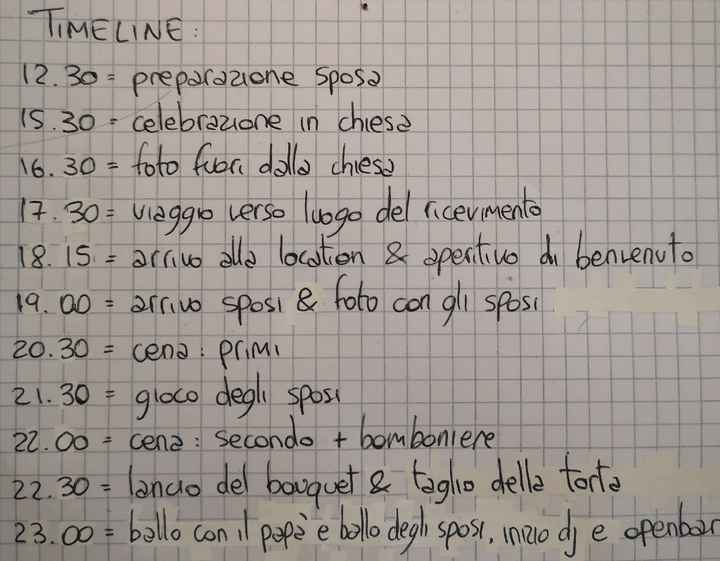 TIMELINE:
12.30 = preparazione sposa
15.30 = celebrazione in chiesa
16.30 = foto fuori dalla chiesa
17.30 = viaggio verso luogo del ricevimento
18.15 = arrivo alla location & aperitivo di benvenuto
19.00 = arrivo sposi & foto con gli sposi
20.30 = cena: primi
21.30 = gioco degli sposi
22.00 = cena: secondo + bomboniere
22.30 = lancio del bouquet & taglio della torta
23.00 = ballo con il papà e ballo degli sposi, inizio dj e openbar